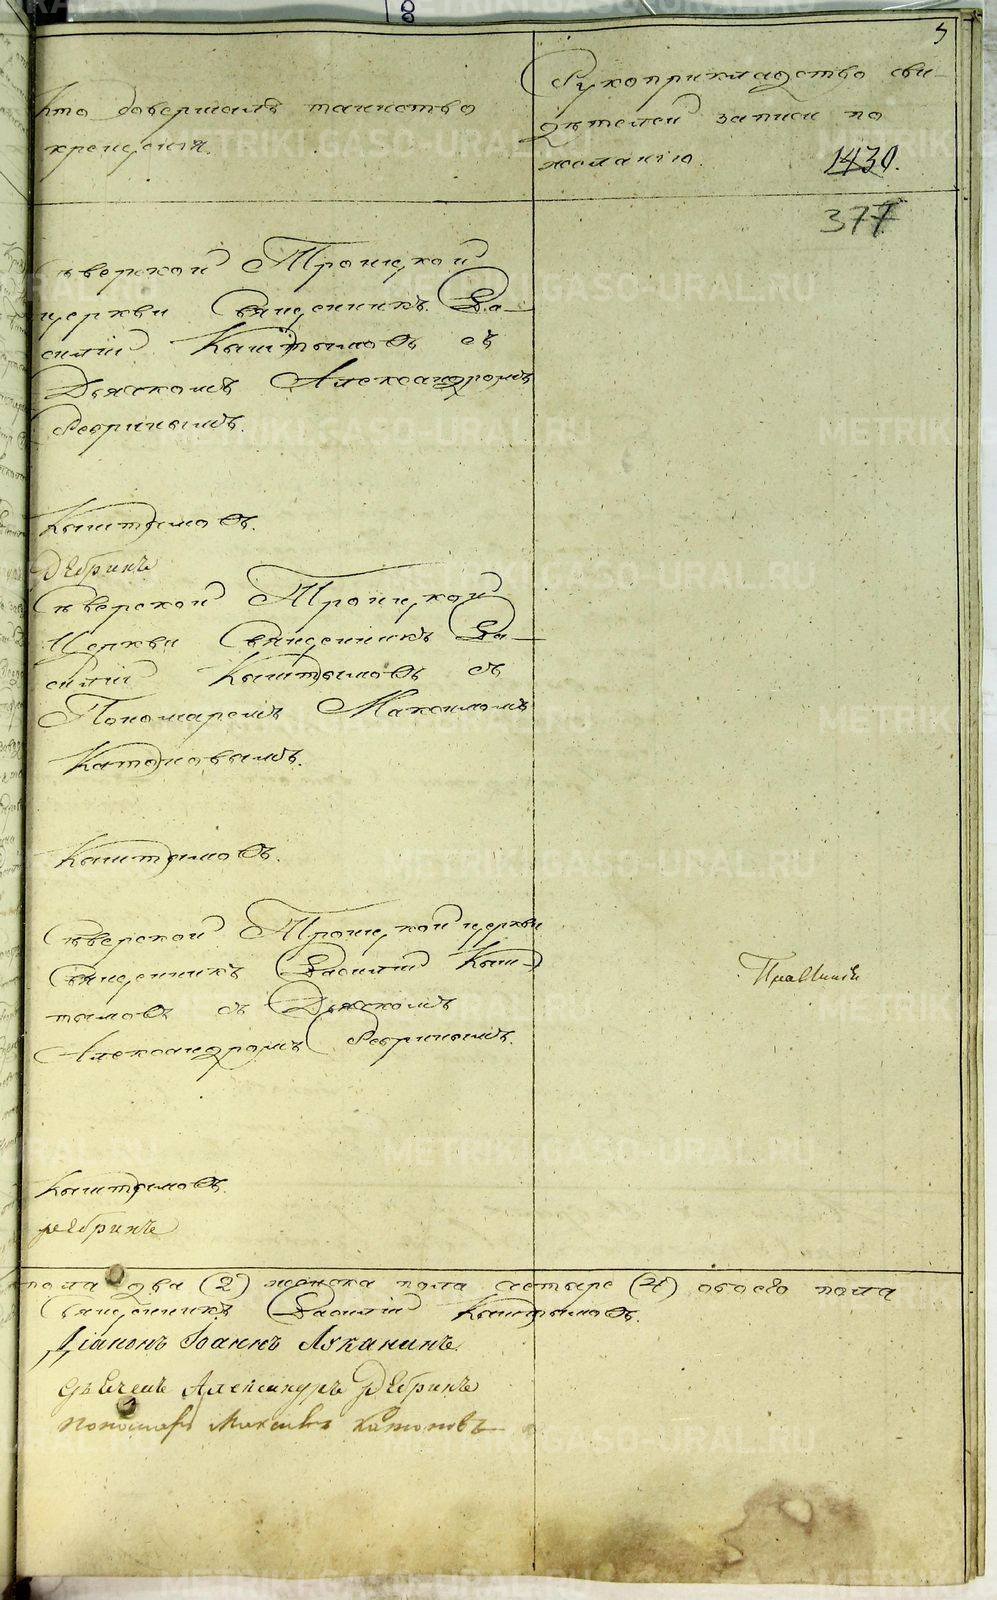 8
5
Кто совершалъ таинство
крещенія.
Рукоприкладство сви-
дѣтелей записи по
желанію.
1430.
377
Сѣверской Троицкой
церкви Священникъ Ва-
силій Кыштымовъ съ
Дьячкомъ Александромъ
Ребринымъ.
Кыштымовъ.
Ребринъ
Сѣверской Троицкой
Церкви Священникъ Ва-
силій Кыштымовъ съ
Пономаремъ Максимомъ
Катоновымъ.
Кыштымовъ.
Сѣверской Троицкой церкви
Священникъ Василій Кыш-
тымовъ съ Дьячкомъ
Александромъ Ребринымъ.
Кыштымовъ.
Ребринъ
пола два (2) женска пола четыре (4) обоего пола
Священникъ Василій Кыштымовъ.
Діаконъ Іоаннъ Луканинъ.
Александръ Ребринъ
Пономарь Максимъ Катоновъ
METRIKI.GASO-URAL.RU